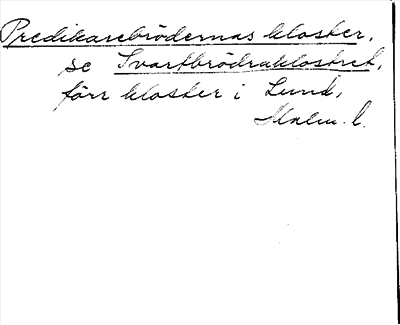 Predikarebrödernas kloster,
se Svartbrödraklostret,
förr kloster i Lund,
Malm. l.